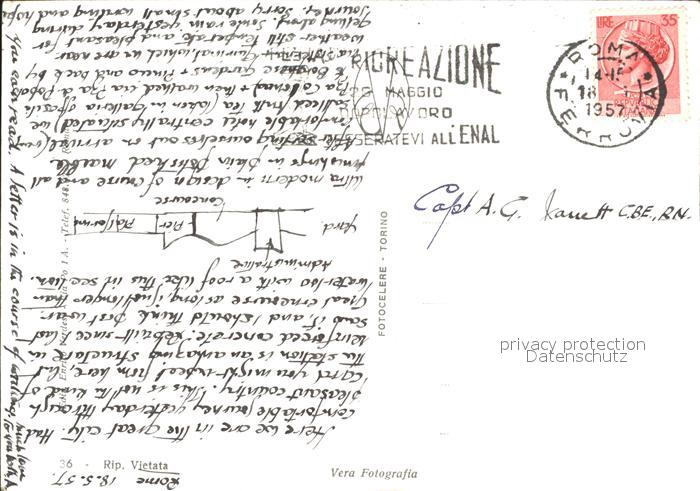 LIRE 35
ROMA
FERROVIA
14-15
18
1957
RICREAZIONE
MAGGIO
DOPOLAVORO
TESSERATEVI ALL'ENAL
Rome 18.5.57.
Here we are in the great city. Had
comfortable journey yesterday through
pleasant country. This is not the kind of
card you might expect from here, but
the station is an amazing structure in
reinforced concrete; rebuilt since last
war and I should think post war.
Great concourse as long if not longer than
Waterloo with a roof like this in section.
Administrative
yard
Pier
Platforms
Concourse
Ultra modern in design of course and all
finishings in plain polished marble.
After sorting ourselves out on arrival (very
comfortable hotel centrally situated) we
walked
Pza Colonna & then walked via Pza del Popolo
to Borghese Gardens & Pincio and back by
which we are near
weather still temperate and pleasant for
getting along. Some rain yesterday during
journey. Sorry about small writing and hope
you can read. A letter is in the course of writing. Much love
to you both, A.
Capt A. G. C.B.E., R.N.
FOTOCELERE - TORINO
36 - Rip. Vietata
Vera Fotografia
privacy protection
Datenschutz